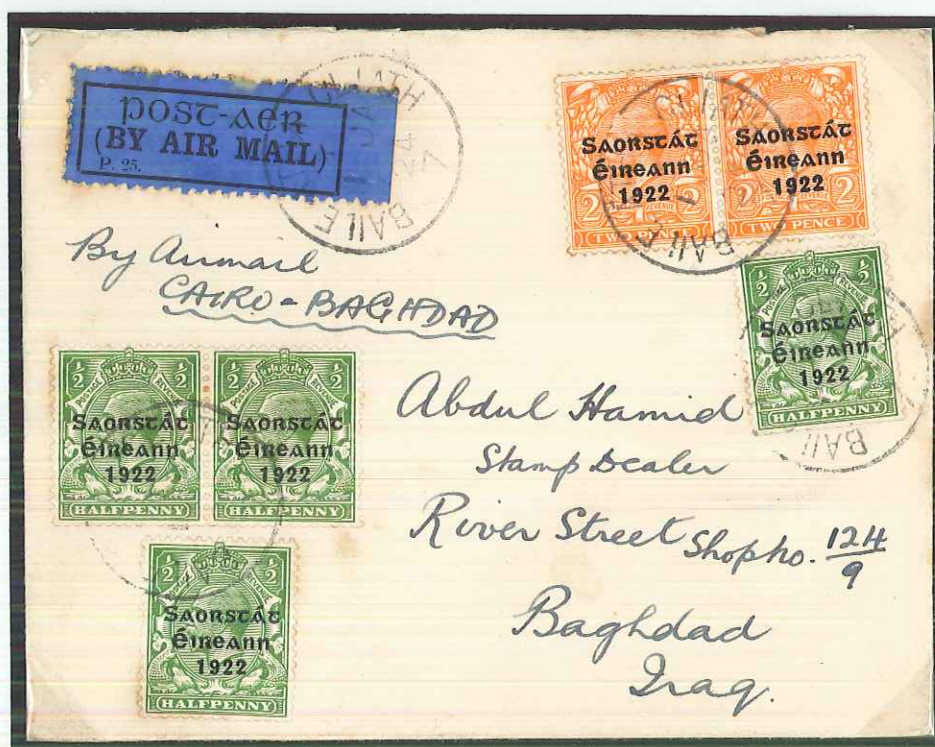 POST-AER
(BY AIR MAIL)
P. 25.
BAILE
JA
24
By Airmail
CAIRO - BAGHDAD
Saorstát
Éireann
1922
2
2
TWO PENCE
Saorstát
Éireann
1922
2
2
TWO PENCE
BAILE
½
½
POSTAGE
REVENUE
Saorstát
Éireann
1922
HALFPENNY
½
½
POSTAGE
REVENUE
Saorstát
Éireann
1922
HALFPENNY
½
½
POSTAGE
REVENUE
Saorstát
Éireann
1922
HALFPENNY
½
½
POSTAGE
REVENUE
Saorstát
Éireann
1922
HALFPENNY
Abdul Hamid
Stamp Dealer
River Street Shop No. 124/9
Baghdad
Iraq.